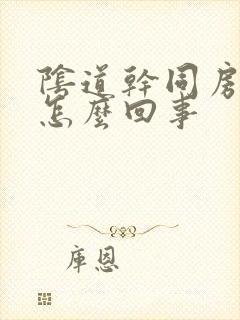 陰道幹同房
怎麼回事
庫恩